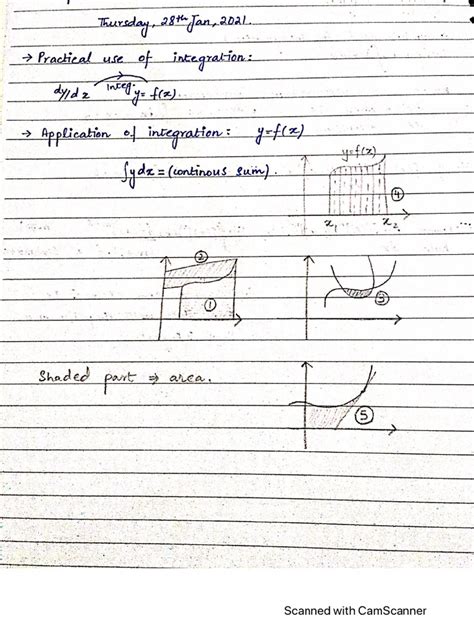 Thursday, 28th Jan, 2021.
→ Practical use of integration:
dy/dx integ. y = f(x).
→ Application of integration: y=f(x)
∫ydx = (continous sum).
y=f(x)
④
x₁ x₂
②
①
③
Shaded part ⇒ area.
⑤
Scanned with CamScanner